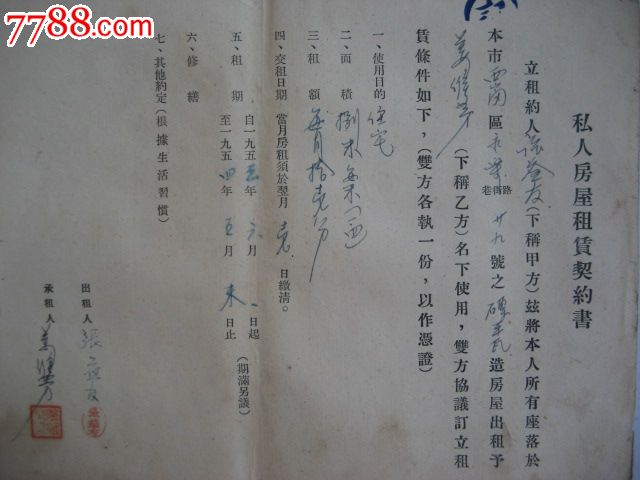 7788.com
中国收藏热线
私人房屋租賃契約書
立租約人張益友(下稱甲方)兹將本人所有座落於
本市西崗區永業路街巷廿九號之磚瓦造房屋出租予
姜（下稱乙方)名下使用，雙方協議訂立租
賃條件如下，(雙方各執一份，以作憑證)
一、使用目的 住宅
二、面積 捌
三、租額 每月拾
四、交租日期 當月房租須於翌月 日繳清。
五、租期 自一九五三年六月一日起
至一九五四年五月末日止 (期滿另議)
六、修繕
七、其他約定(根據生活習慣)
出租人 張益友
承租人 姜